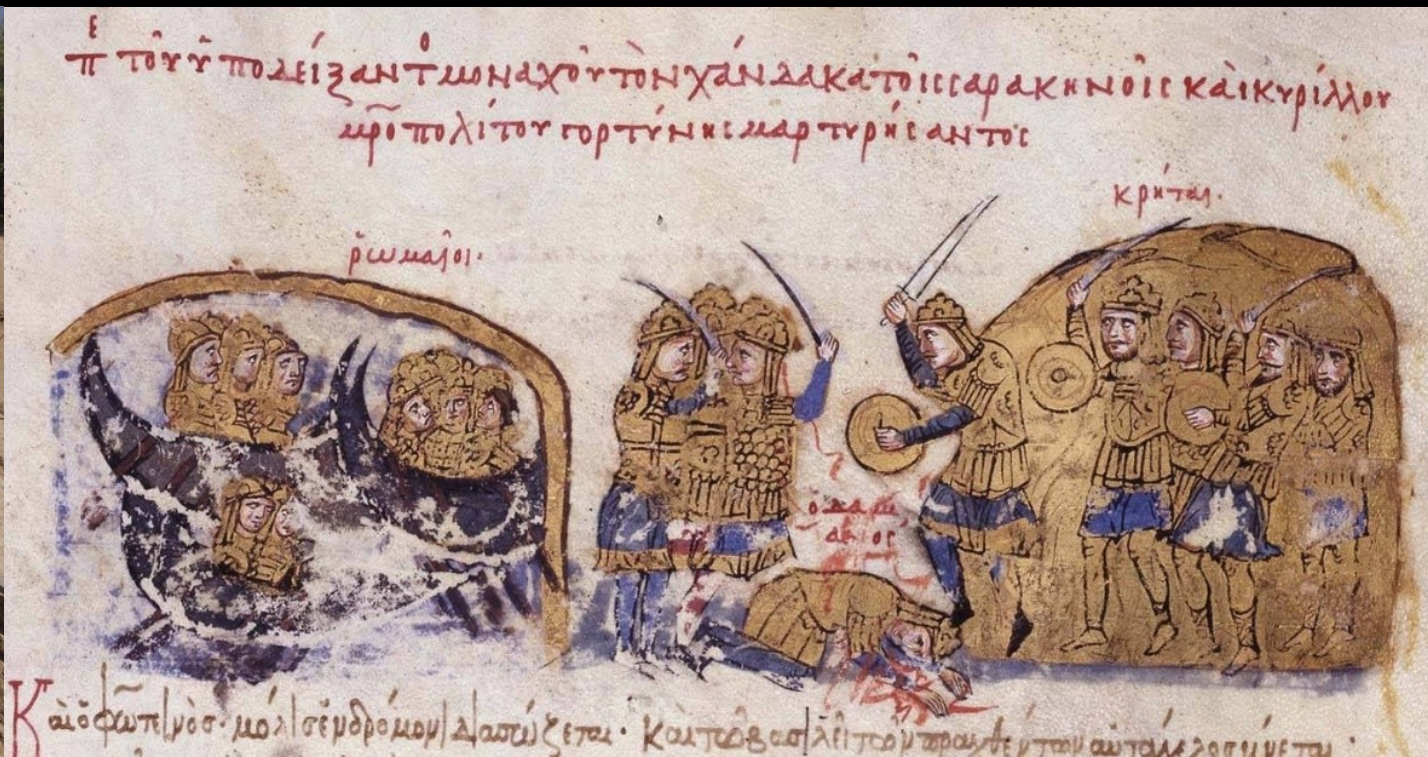 π̅ε τοῦ ὑποδείξαντο̅ μοναχοῦ τὸν χάνδακα τοῖς σαρακηνοῖς καὶ κυρίλλου
μρ̅οπολίτου γορτύνης μαρτυρήσαντος
κρῆται·
ῥωμαῖοι·
ὁ δαμι
ανος
Καὶ ὁ φωτεινὸς· μόλις ἐν δρόμωνι διασώζεται· καὶ τῷ βασιλεῖ τῶν πραχθέντων αὐτάγγελος γίνεται·